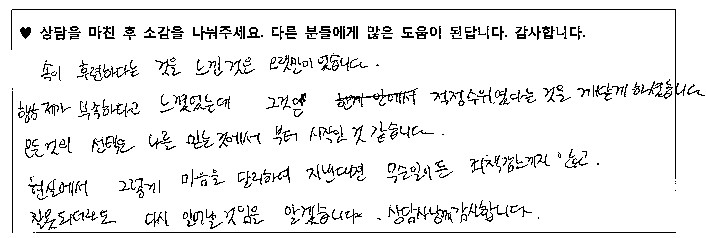 ♥ 상담을 마친 후 소감을 나눠주세요. 다른 분들에게 많은 도움이 된답니다. 감사합니다.
속이 후련하다는 것을 느낀것은 오랫만이었습니다.
항상 제가 부족하다고 느꼈었는데 그것은 적정수위였다는 것을 깨닫게 하셨습니다
모든 것의 선택은 나를 믿는것에서 부터 시작인 것 같습니다.
현실에서 그렇게 마음을 달리하여 지낸다면 무슨일이든 죄책감느끼지 않고.
잘못되더라도 다시 일어날것임을 알겠습니다. 상담사님께 감사합니다.